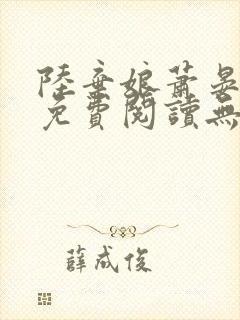 陸棄娘蕭晏
免費閱讀無
薛成俊